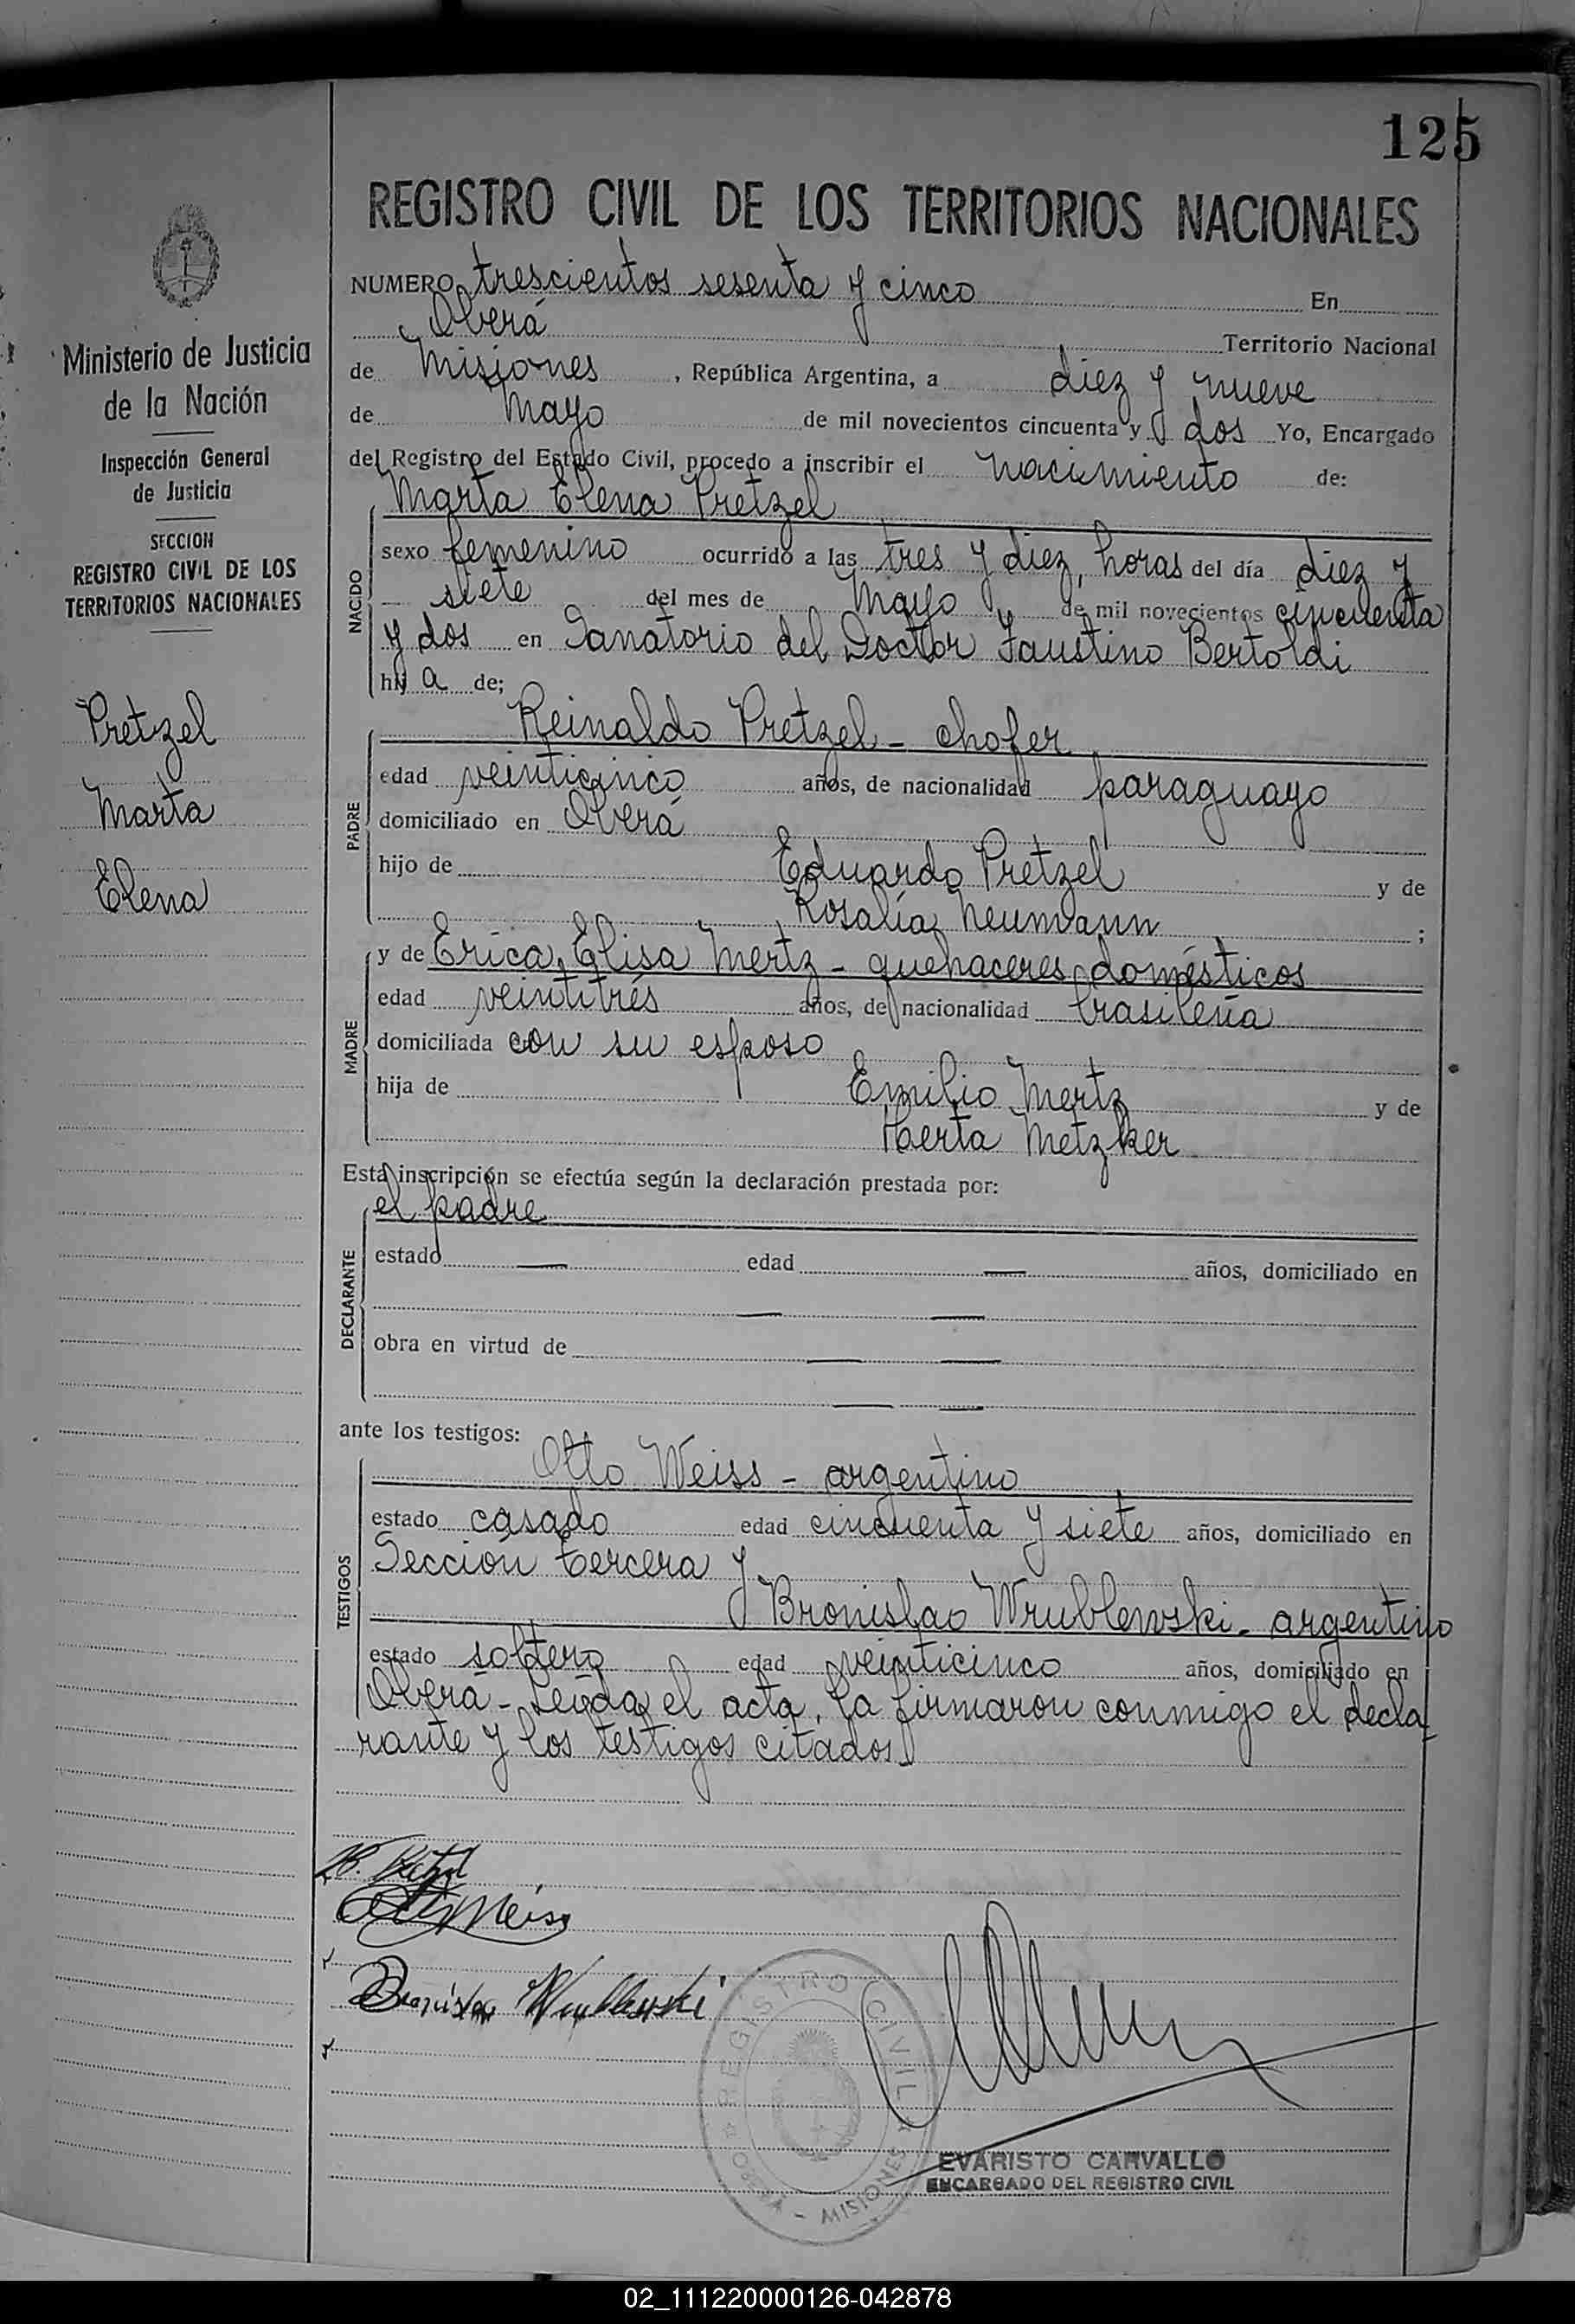 125
REGISTRO CIVIL DE LOS TERRITORIOS NACIONALES
Ministerio de Justicia
de la Nación
Inspección General
de Justicia
SECCION
REGISTRO CIVIL DE LOS
TERRITORIOS NACIONALES
Pretzel
Marta
Elena
NUMERO trescientos sesenta y cinco En
Oberá Territorio Nacional
de Misiones, República Argentina, a diez y nueve
de Mayo de mil novecientos cincuenta y dos Yo, Encargado
del Registro del Estado Civil, procedo a inscribir el nacimiento de:
Marta Elena Pretzel
NACIDO
sexo femenino ocurrido a las tres y diez, horas del día diez y
siete del mes de Mayo de mil novecientos cincuenta
y dos en Sanatorio del Doctor Faustino Bertoldi
hij a de;
Reinaldo Pretzel - chofer
PADRE
edad veinticinco años, de nacionalidad paraguayo
domiciliado en Oberá
hijo de Eduardo Pretzel y de
Rosalía Neumann ;
y de Erica Elisa Mertz - quehaceres domésticos
MADRE
edad veintitrés años, de nacionalidad brasileña
domiciliada con su esposo
hija de Emilio Mertz y de
Herta Metzker
Esta inscripción se efectúa según la declaración prestada por:
el padre
DECLARANTE
estado — edad — años, domiciliado en
— —
obra en virtud de — —
— —
ante los testigos:
Otto Weiss - argentino
TESTIGOS
estado casado edad cincuenta y siete años, domiciliado en
Sección tercera y
Bronislao Wrublewski - argentino
estado soltero edad veinticinco años, domiciliado en
Oberá - Leída el acta, la firmaron conmigo el decla-
rante y los testigos citados
R. Pretzel
Otto Weiss
Bronislao Wrublewski
REGISTRO CIVIL
OBERÁ - MISIONES
EVARISTO CARVALLO
ENCARGADO DEL REGISTRO CIVIL
02_111220000126-042878